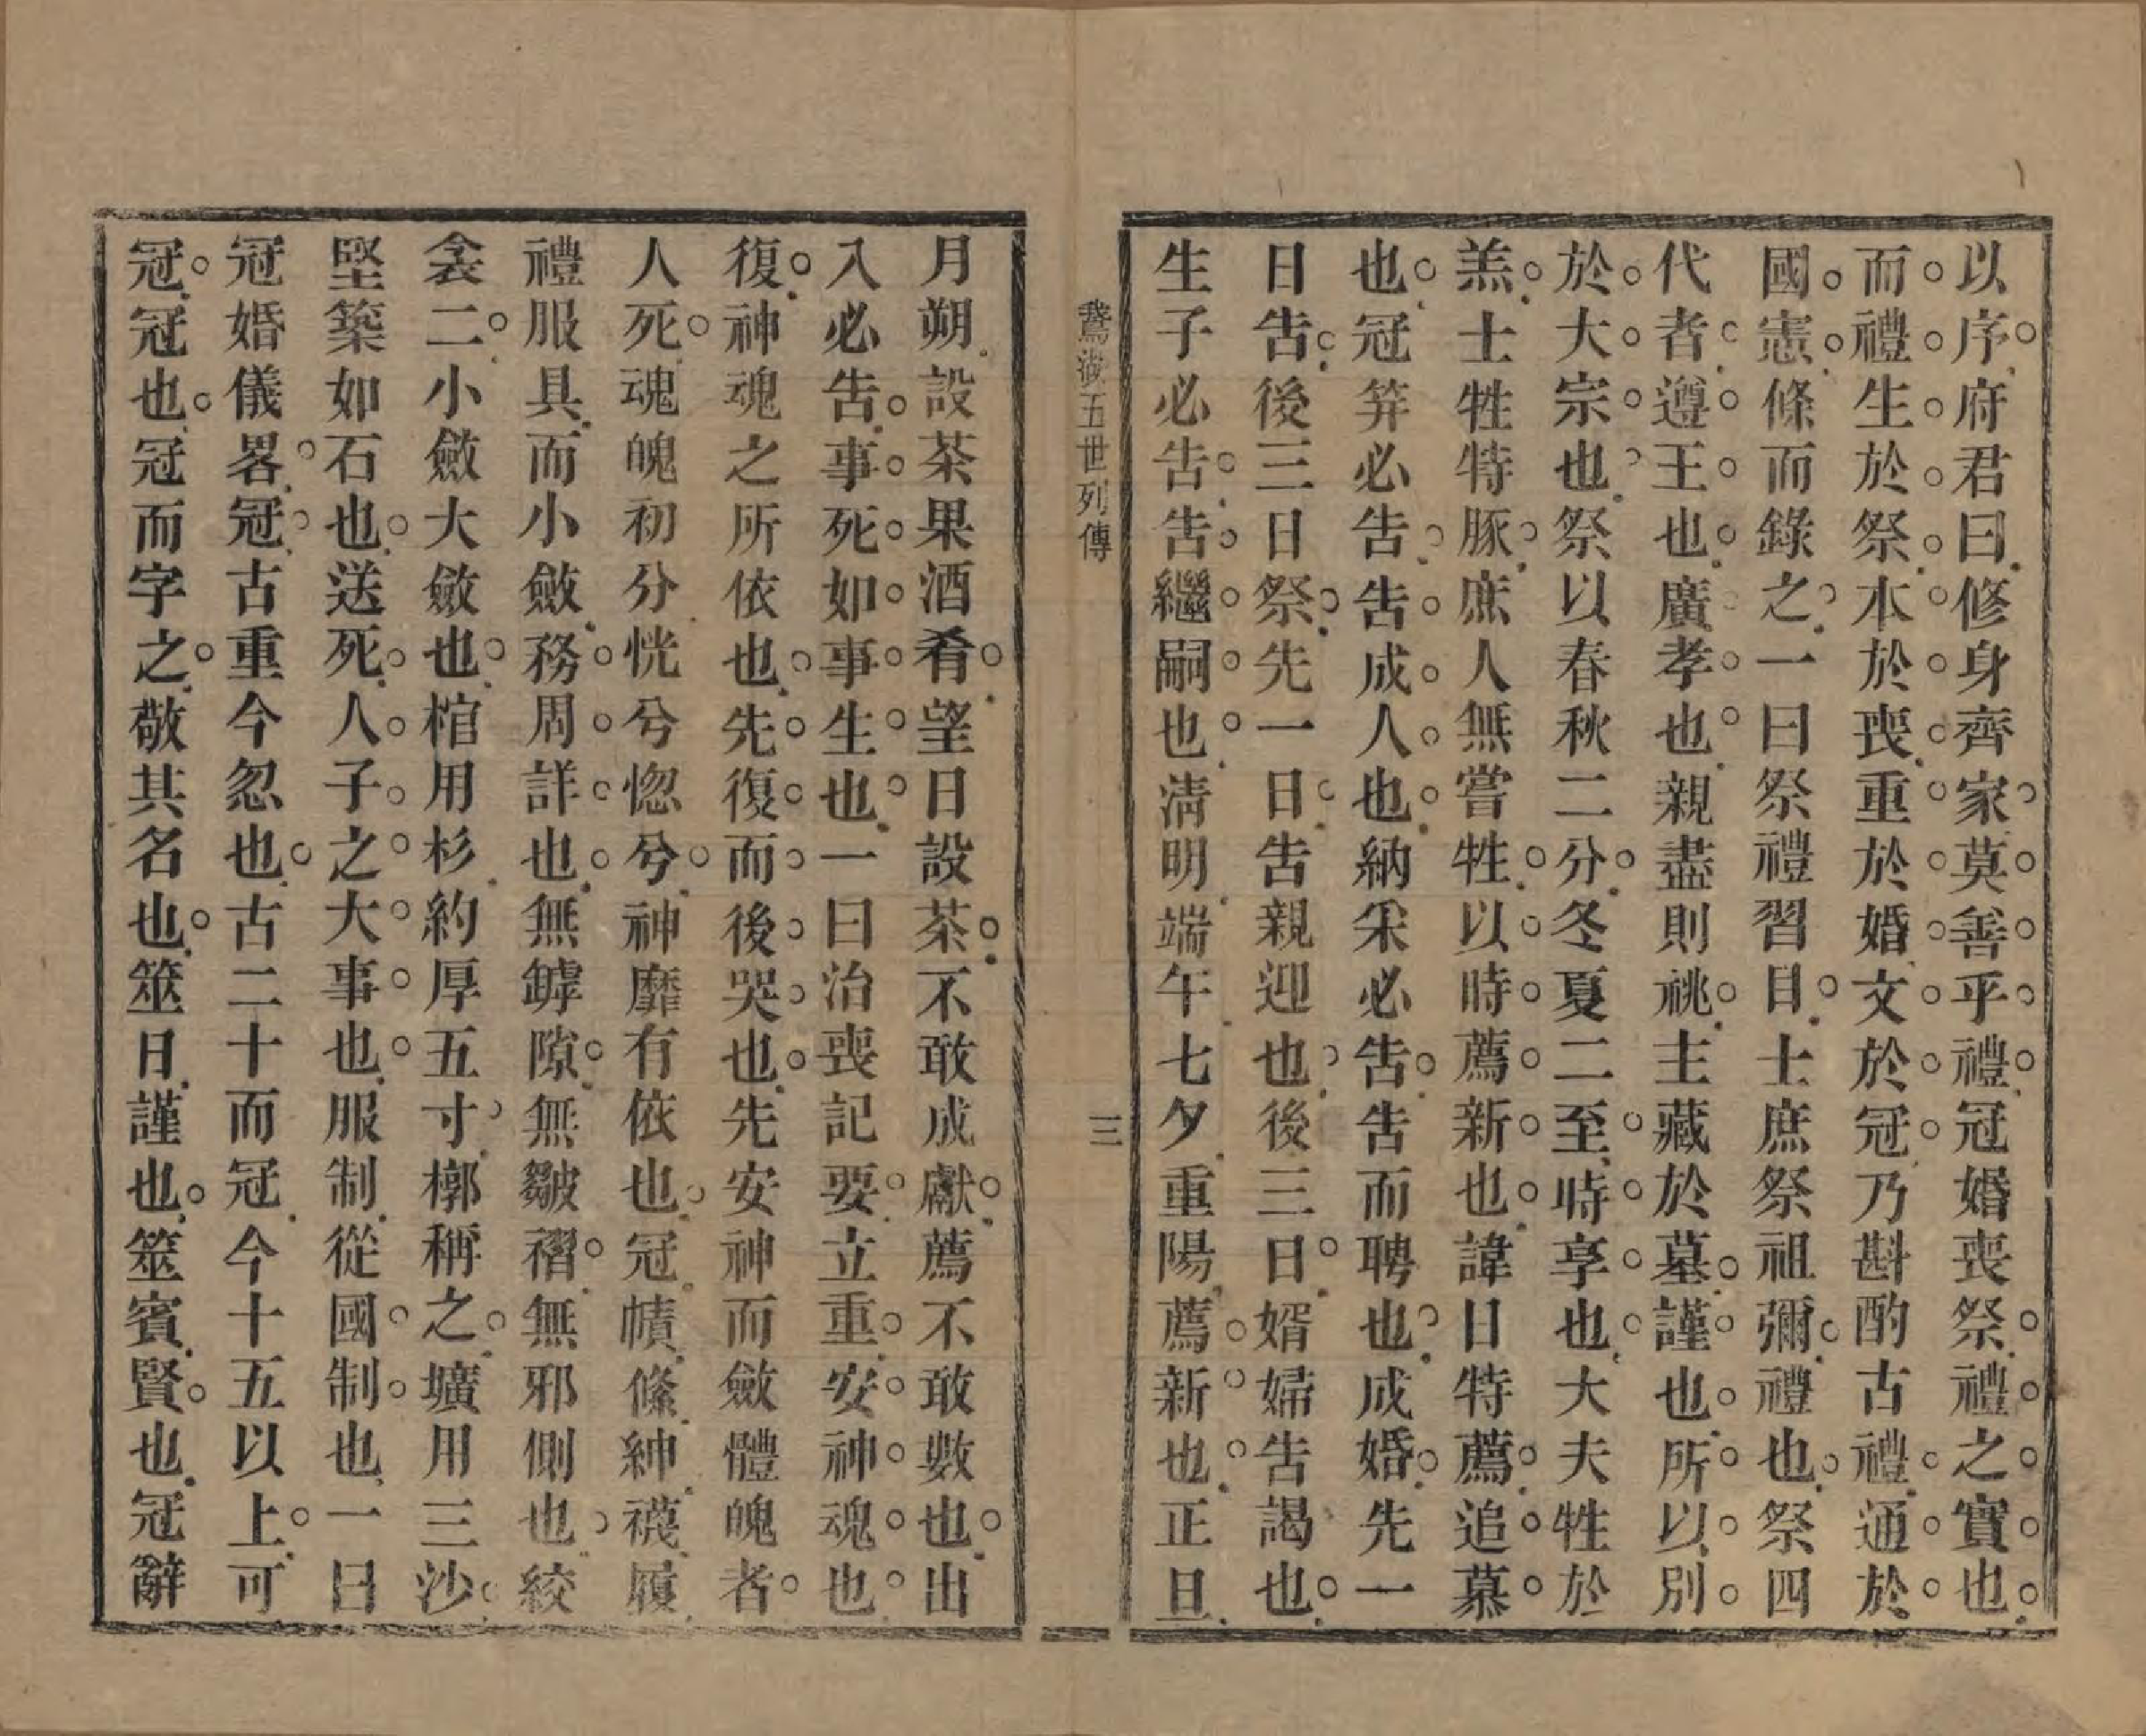 以序府君曰修身齊家莫善乎禮冠婚喪祭禮之實也
而禮生於祭本於喪重於婚文於冠乃斟酌古禮通於
國憲條而錄之一曰祭禮習目士庶祭祖彌禮也祭四
代者遵王也廣孝也親盡則祧主藏於墓謹也所以別
於大宗也祭以春秋二分冬夏二至時享也大夫牲於
羔士牲特豚庶人無嘗牲以時薦新也諱日特薦追慕
也冠笄必告告成人也納采必告告而聘也成婚先一
日告後三日祭先一日告親迎也後三日婿婦告謁也
生子必告告繼嗣也淸明端午七夕重陽薦新也正旦
鵞湖五世列傳
三
月朔設茶果酒肴望日設茶不敢成獻薦不敢數也出
入必告事死如事生也一曰治喪記要立重安神魂也
復神魂之所依也先復而後哭也先安神而斂體魄者
人死魂魄初分恍兮惚兮神靡有依也冠幘絛紳襪履
禮服具而小斂務周詳也無罅隙無皺褶無邪側也絞
衾二小斂大斂也棺用杉約厚五寸槨稱之壙用三沙
堅築如石也送死人子之大事也服制從國制也一曰
冠婚儀畧冠古重今忽也古二十而冠今十五以上可
冠冠也冠而字之敬其名也筮日謹也筮賓賢也冠辭